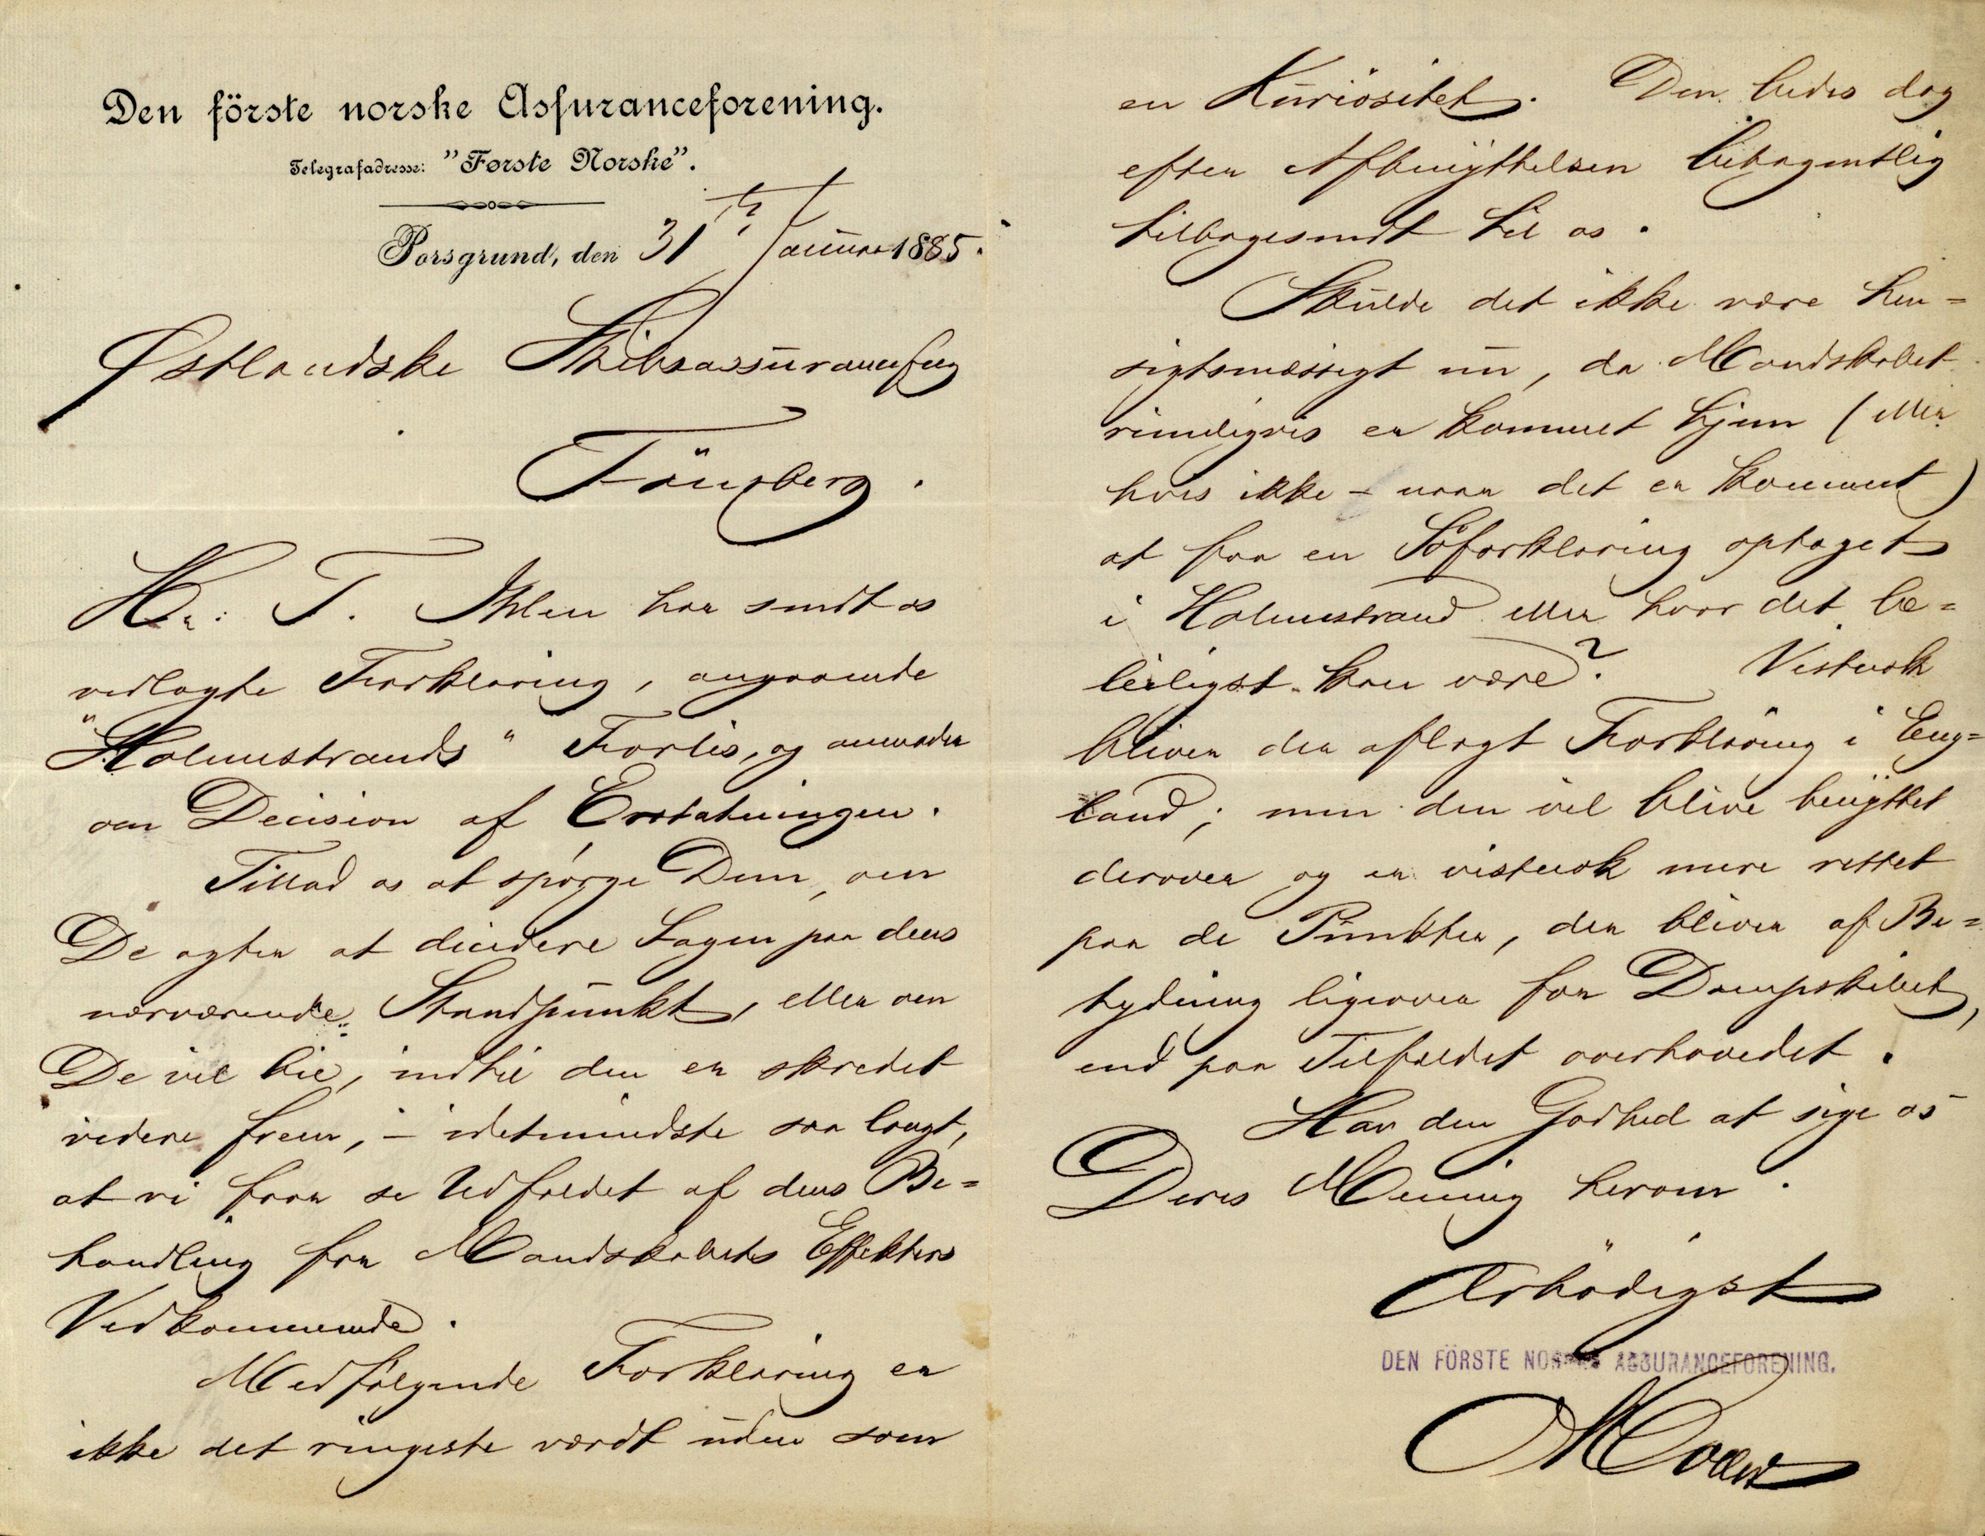 Den förste norske Assuranceforening.
Telegrafadresse: "Første Norske".
Porsgrund, den 31te Januar 1885.
Østlandske Skibsassuranceforg
Tönsberg.
Hr. T. Ihlen har sendt os
vedlagte Forklaring, angaaende
"Holmestrands" Forlis, og anmoder
om Decision af Erstatningen.
Tillad os at spørge Dem, om
De agter at decidere Sagen paa dens
nærværende Standpunkt, eller om
De vil bie, indtil den er skredet
videre frem, – idetmindste saa langt,
at vi faar se Udfaldet af dens Be=
handling for Mandskabets Effekters
Vedkommende.
Medfølgende Forklaring er
ikke det ringeste værdt uden som
en Kuriositet. Den bedes dog
efter Afbenyttelsen behagentlig
tilbagesendt til os.
Skulde det ikke være hen=
sigtsmæssigt nu, da Mandskabet
rimeligvis er kommet hjem (eller
hvis ikke – naar det er kommet)
at faa en Söforklaring optaget
i Holmestrand eller hvor det be=
leiligst kan være? Vistnok
bliver der aflagt Forklaring i Eng=
land; men den vil blive benyttet
derover og er vistnok mere rettet
paa de Punkter, der bliver af Be=
tydning ligeover for Dampskibet,
end paa Tilfældet overhovedet.
Hav den Godhed at sige os
Deres Mening herom.
Ærbödigst
DEN FÖRSTE NORSKE ASSURANCEFORENING.